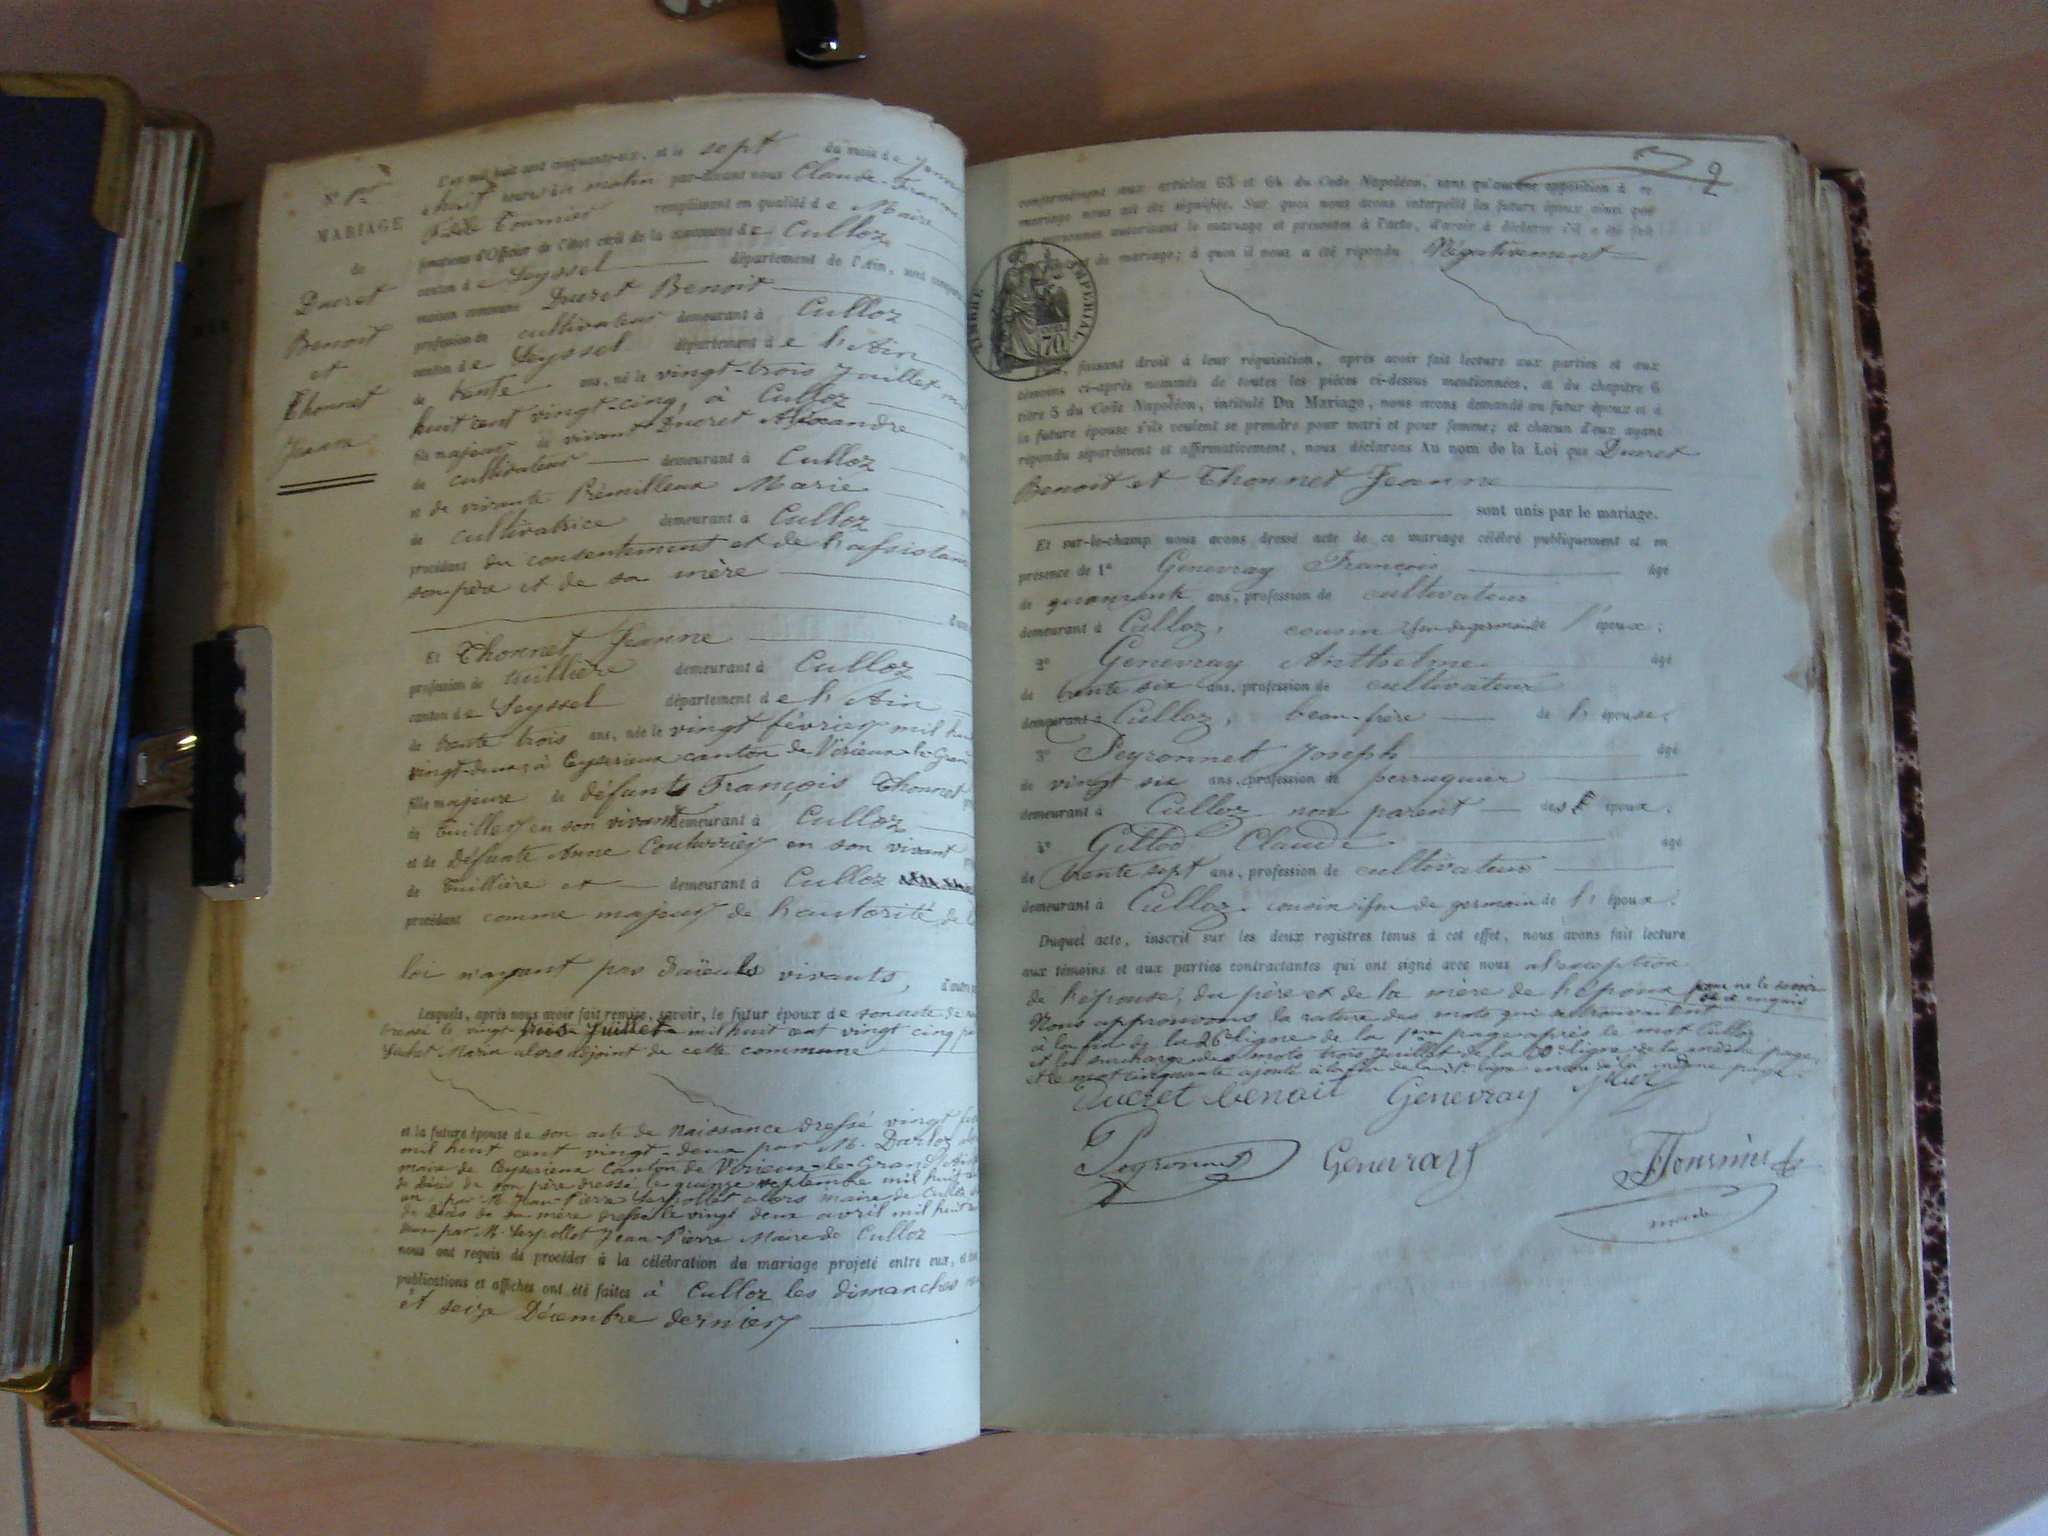 N° 1er
MARIAGE
de
Ducret
Benoit
et
Thonnet
Jeanne
L'an mil huit cent cinquante-six, et le sept du mois de
huit heures du matin par-devant nous Claude-François
Tournier remplissant en qualité de Maire
fonctions d'Officier de l'état civil de la commune de Culloz
canton de Seyssel département de l'Ain, sont comparus
maison commune Ducret Benoit
profession de cultivateur demeurant à Culloz
canton de Seyssel département de l'Ain
de trente ans, né le vingt-trois Juillet mil
huit cent vingt-cinq à Culloz
fils majeur de vivant Ducret Alexandre
de cultivateur demeurant à Culloz
et de vivante Prémilleux Marie
de cultivatrice demeurant à Culloz
procédant du consentement et de l'assistance
son père et de sa mère
Et Thonnet Jeanne
profession de tuillière demeurant à Culloz
canton de Seyssel département de l'Ain
de trente trois ans, née le vingt février mil huit
vingt-deux à Ceyserieux canton de Virieux-le-Grand
fille majeure de défunt François Thonnet
de Tuiller en son vivant demeurant à Culloz
et de défunte Anne Couturier en son vivant
de Tuillière et demeurant à Culloz
procédant comme majeur de l'autorité de la
loi n'ayant pas d'aïeuls vivants, d'autre
Lesquels, après nous avoir fait remise, savoir, le futur époux de son acte de
dressé le vingt trois Juillet mil huit cent vingt cinq par
alors adjoint de cette commune
et la future épouse de son acte de naissance dressé vingt
mil huit cent vingt-deux par M. Darloz
maire de Ceyserieux Canton de Virieux-le-Grand
de décès de son père dressé le quinze septembre mil huit cent
un par M. Jean-Pierre Serpollet alors maire de Culloz
de décès de sa mère dressé le vingt deux avril mil huit
par M. Serpollet Jean-Pierre Maire de Culloz
nous ont requis de procéder à la célébration du mariage projeté entre eux,
publications et affiches ont été faites à Culloz les dimanches
et seize Décembre dernier
2
conformément aux articles 63 et 64 du Code Napoléon, sans qu'aucune opposition à ce
mariage nous ait été signifiée. Sur quoi nous avons interpellé les futurs époux ainsi que
personnes autorisant le mariage et présentes à l'acte, d'avoir à déclarer s'il a été fait
de mariage; à quoi il nous a été répondu Négativement
TIMBRE IMPERIAL
70
faisant droit à leur réquisition, après avoir fait lecture aux parties et aux
témoins ci-après nommés de toutes les pièces ci-dessus mentionnées, et du chapitre 6
titre 5 du Code Napoléon, intitulé Du Mariage, nous avons demandé au futur époux et à
la future épouse s'ils veulent se prendre pour mari et pour femme; et chacun d'eux ayant
répondu séparément et affirmativement, nous déclarons Au nom de la Loi que Ducret
Benoit et Thonnet Jeanne
sont unis par le mariage.
Et sur-le-champ nous avons dressé acte de ce mariage célébré publiquement et en
présence de 1° Genevray François âgé
de quarante ans, profession de cultivateur
demeurant à Culloz, cousin issu de germain de l'époux;
2° Genevray Anthelme âgé
de trente six ans, profession de cultivateur
demeurant à Culloz, beau-frère de l'épouse;
3° Peyronnet Joseph âgé
de vingt six ans, profession de perruquier
demeurant à Culloz non parent des époux;
4° Gillod Claude âgé
de trente sept ans, profession de cultivateur
demeurant à Culloz cousin issu de germain de l'époux.
Duquel acte, inscrit sur les deux registres tenus à cet effet, nous avons fait lecture
aux témoins et aux parties contractantes qui ont signé avec nous à l'exception
de l'épouse, du père et de la mère de l'époux pour ne le savoir
de ce enquis
Nous approuvons la rature des mots qui se trouvaient
à la fin de la 26e ligne de la 1ère page après le mot Culloz
et la surcharge des mots trois Juillet de la ligne de la même page,
et le mot cinquante ajouté à la fin de la ligne de la même page.
Ducret benoit Genevray
Peyronnet Genevray Tournier
maire